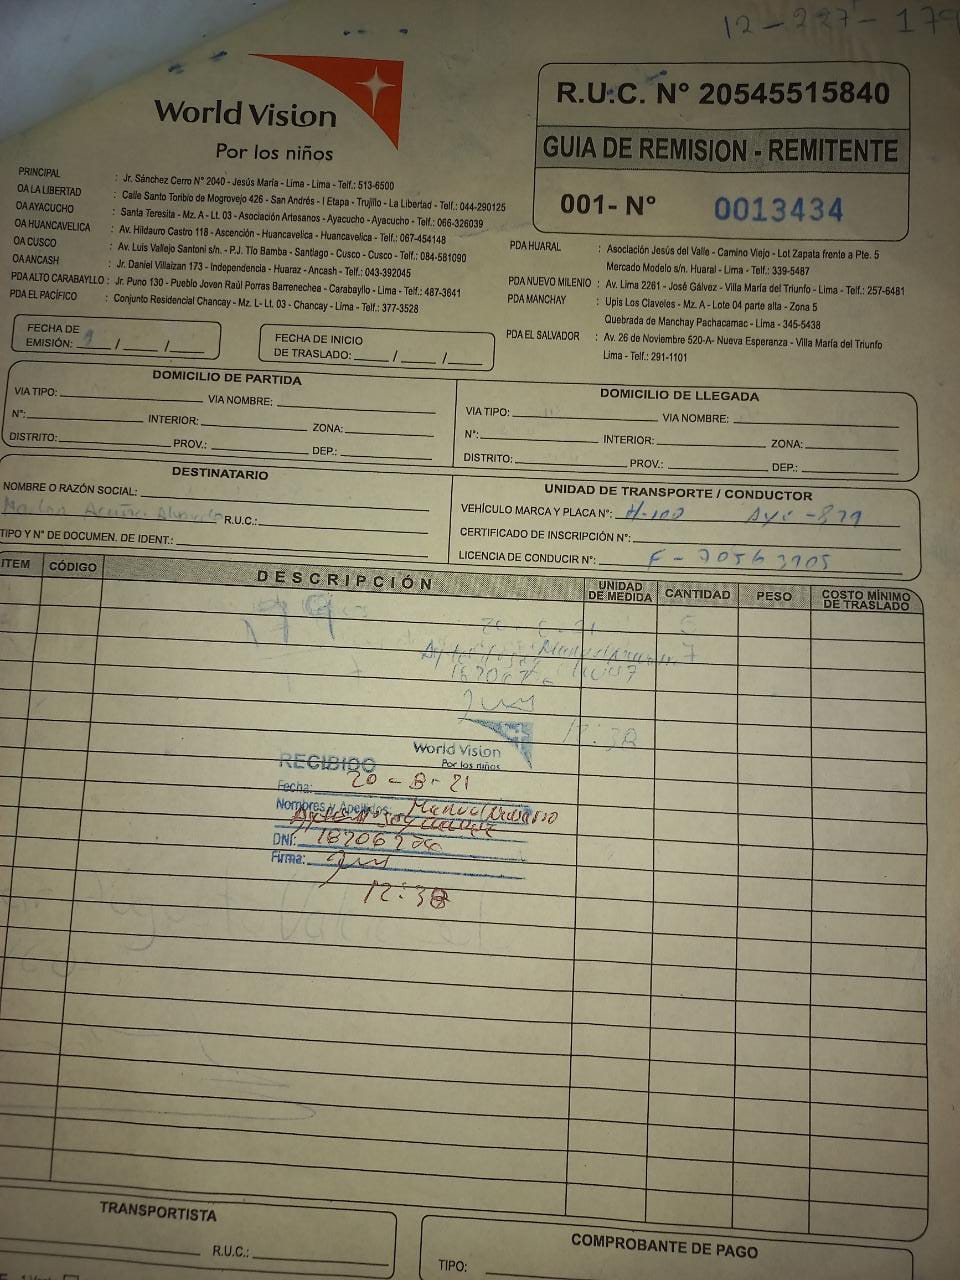 12-227-179
World Vision
Por los niños
R.U.C. N° 20545515840
GUIA DE REMISION - REMITENTE
001- N° 0013434
PRINCIPAL : Jr. Sánchez Cerro N° 2040 - Jesús María - Lima - Lima - Telf.: 513-6500
OA LA LIBERTAD : Calle Santo Toribio de Mogrovejo 426 - San Andrés - I Etapa - Trujillo - La Libertad - Telf.: 044-290125
OA AYACUCHO : Santa Teresita - Mz. A - Lt. 03 - Asociación Artesanos - Ayacucho - Ayacucho - Telf.: 066-326039
OA HUANCAVELICA : Av. Hildauro Castro 118 - Ascención - Huancavelica - Huancavelica - Telf.: 067-454148
OA CUSCO : Av. Luis Vallejo Santoni s/n. - P.J. Tío Bamba - Santiago - Cusco - Cusco - Telf.: 084-581090
OA ANCASH : Jr. Daniel Villaizan 173 - Independencia - Huaraz - Ancash - Telf.: 043-392045
PDA ALTO CARABAYLLO : Jr. Puno 130 - Pueblo Joven Raúl Porras Barrenechea - Carabayllo - Lima - Telf.: 487-3641
PDA EL PACÍFICO : Conjunto Residencial Chancay - Mz. L- Lt. 03 - Chancay - Lima - Telf.: 377-3528
PDA HUARAL : Asociación Jesús del Valle - Camino Viejo - Lot Zapata frente a Pte. 5
Mercado Modelo s/n. Huaral - Lima - Telf.: 339-5487
PDA NUEVO MILENIO : Av. Lima 2261 - José Gálvez - Villa María del Triunfo - Lima - Telf.: 257-6481
PDA MANCHAY : Upis Los Claveles - Mz. A - Lote 04 parte alta - Zona 5
Quebrada de Manchay Pachacamac - Lima - 345-5438
PDA EL SALVADOR : Av. 26 de Noviembre 520-A- Nueva Esperanza - Villa María del Triunfo
Lima - Telf.: 291-1101
FECHA DE
EMISIÓN: / /
FECHA DE INICIO
DE TRASLADO: / /
DOMICILIO DE PARTIDA
VIA TIPO: VIA NOMBRE:
N°: INTERIOR: ZONA:
DISTRITO: PROV.: DEP.:
DOMICILIO DE LLEGADA
VIA TIPO: VIA NOMBRE:
N°: INTERIOR: ZONA:
DISTRITO: PROV.: DEP.:
DESTINATARIO
NOMBRE O RAZÓN SOCIAL:
R.U.C.:
TIPO Y N° DE DOCUMEN. DE IDENT.:
UNIDAD DE TRANSPORTE / CONDUCTOR
VEHÍCULO MARCA Y PLACA N°: H-100
CERTIFICADO DE INSCRIPCIÓN N°:
LICENCIA DE CONDUCIR N°:
ITEM CÓDIGO DESCRIPCIÓN UNIDAD DE MEDIDA CANTIDAD PESO COSTO MÍNIMO DE TRASLADO
12:38
World Vision
Por los niños
RECIBIDO
Fecha: 20-8-21
Nombres y Apellidos: Manuel
DNI:
Firma:
12:38
TRANSPORTISTA
R.U.C.:
COMPROBANTE DE PAGO
TIPO: